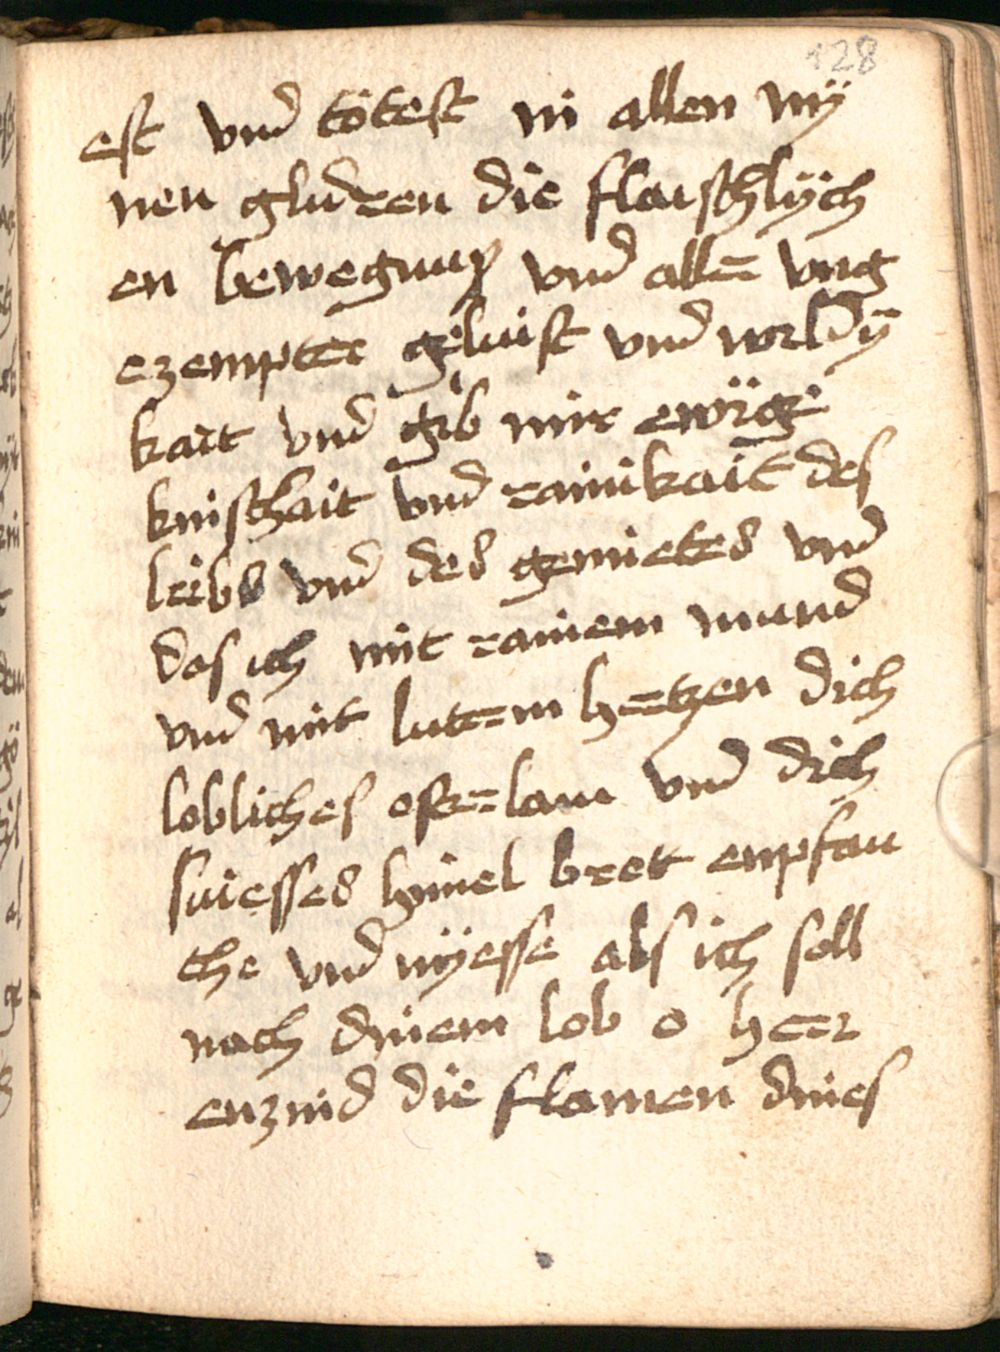 128
est vnd tötest in allen mÿ
nen glidren die flaischlÿch
en bewegung vnd allē vng
ezempter gelust vnd worldÿ
kait vnd gib mir ewige
kuischait vnd rainikait des
leibs vnd des gemietes vnd
das ich mit rainem mund
vnd mit luterm hertzen dich
lobliches osterlam vnd dich
suiesses himel bret empfau
che vnd nÿesse als ich soll
nach dinem lob o herr
enzind die flamen dines